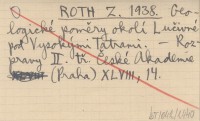 ROTH Z. 1938. Geo-
logické poměry okolí Lučivné
pod Vysokými Tatrami. – Roz-
pravy II. tř. České Akademie
(Praha) XLVIII, 14.